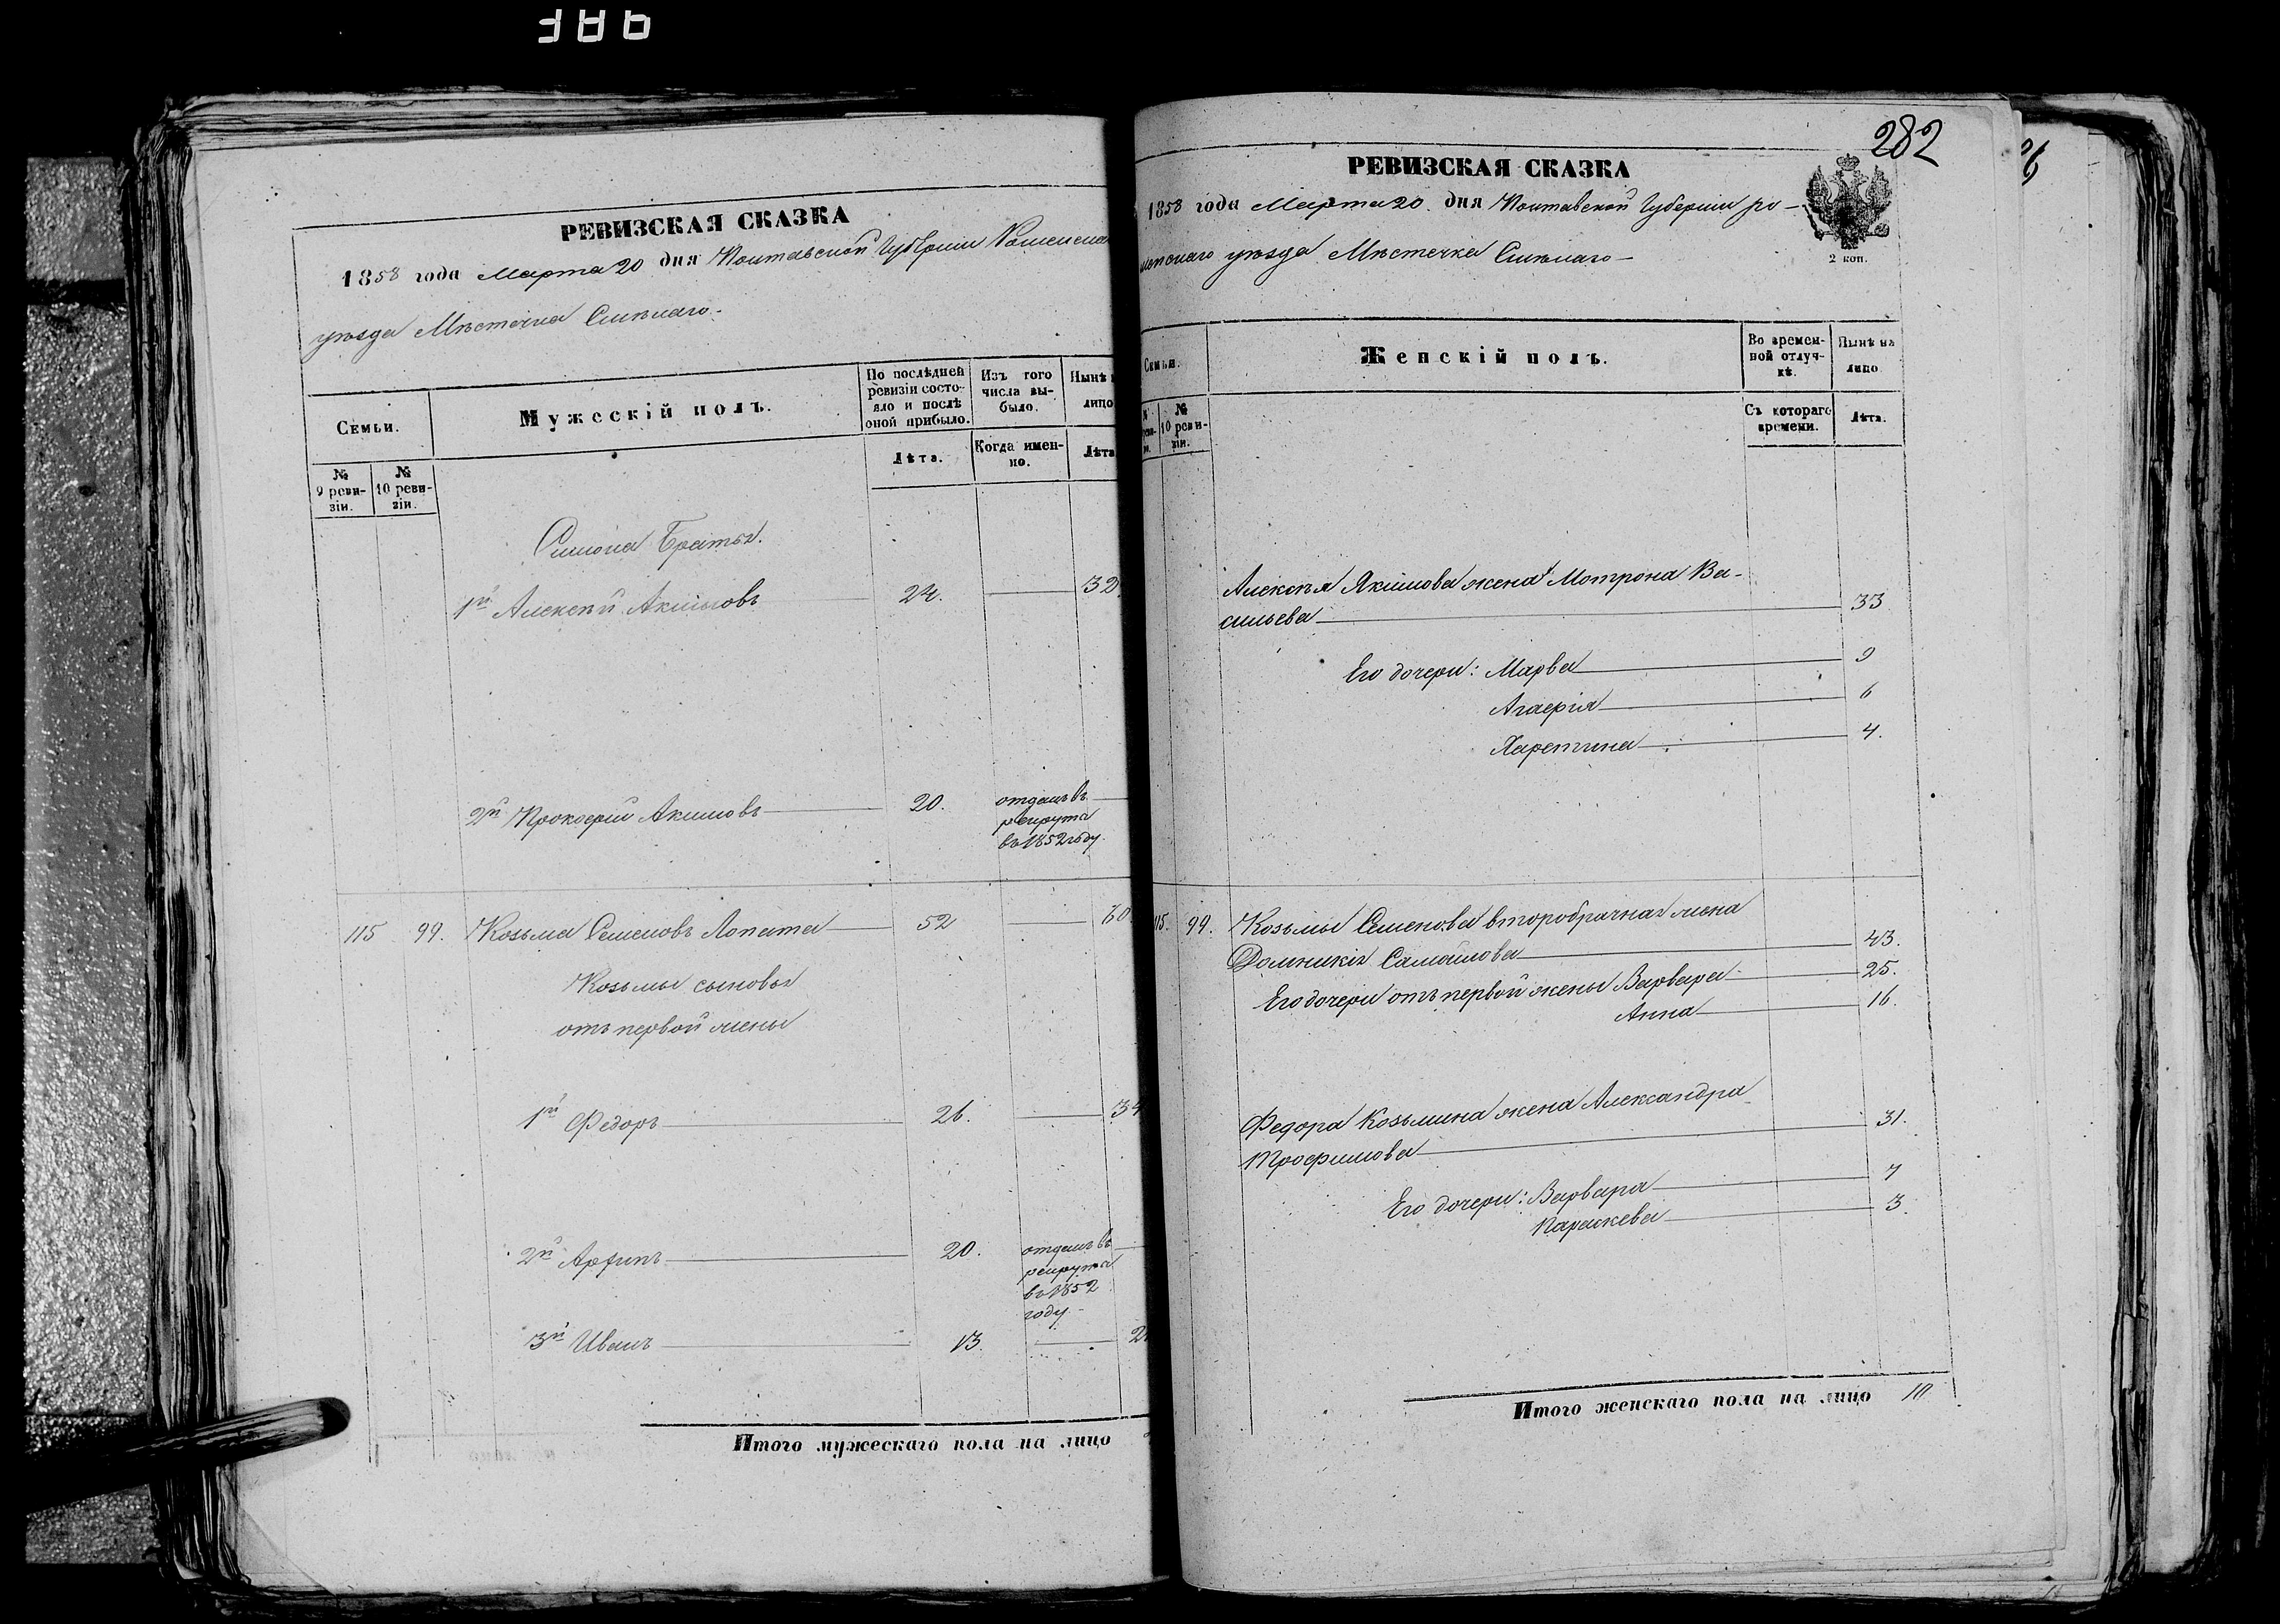 РЕВИЗСКАЯ СКАЗКА
1858 года Марта 20 дня Полтавской Губернии Роменска
уѣзда Мѣстечка Смѣлаго.
Семьи.
Мужескій полъ.
По послѣдней ревизіи состояло и послѣ оной прибыло.
Изъ того числа выбыло.
Нынѣ
лицо
№ 9 ревизіи.
№ 10 ревизіи.
Лѣта.
Когда именно.
Лѣта
Симона Братья.
1й Алексѣй Акимовъ 24. 32
2й Прокофій Акимовъ 20. отданъ въ
рекрута
въ 1852 году.
115 99. Козьма Семеновъ Лопата 52 60
Козьмы сыновья
отъ первой жены
1й Федоръ 26. 34
2й Архипъ 20. отданъ въ
рекрута
въ 1852
году.
3й Иванъ 13. 2
Итого мужескаго пола на лицо
282
РЕВИЗСКАЯ СКАЗКА
1858 года Марта 20. дня Полтавской Губернии ро-
менскаго уѣзда Мѣстечка Смѣлаго
2 коп.
Семьи.
Женскій полъ.
Во временной отлучкѣ.
Нынѣ на лицо
№ 10 ревизіи.
Съ котораго времени.
Лѣта.
Алексѣя Якимова жена Мотрона Ва-
сильева 33
Его дочери: Марва 9
Агафія 6
Харетина 4.
115. 99. Козьмы Семенова второбрачная жена
Домникія Самойлова 43.
Его дочери отъ первой жены Варвара 25.
Анна 16.
Федора Козьмина жена Александра
Трофимова 31.
Его дочери: Варвара 7
Параскева 3.
Итого женскаго пола на лицо 10